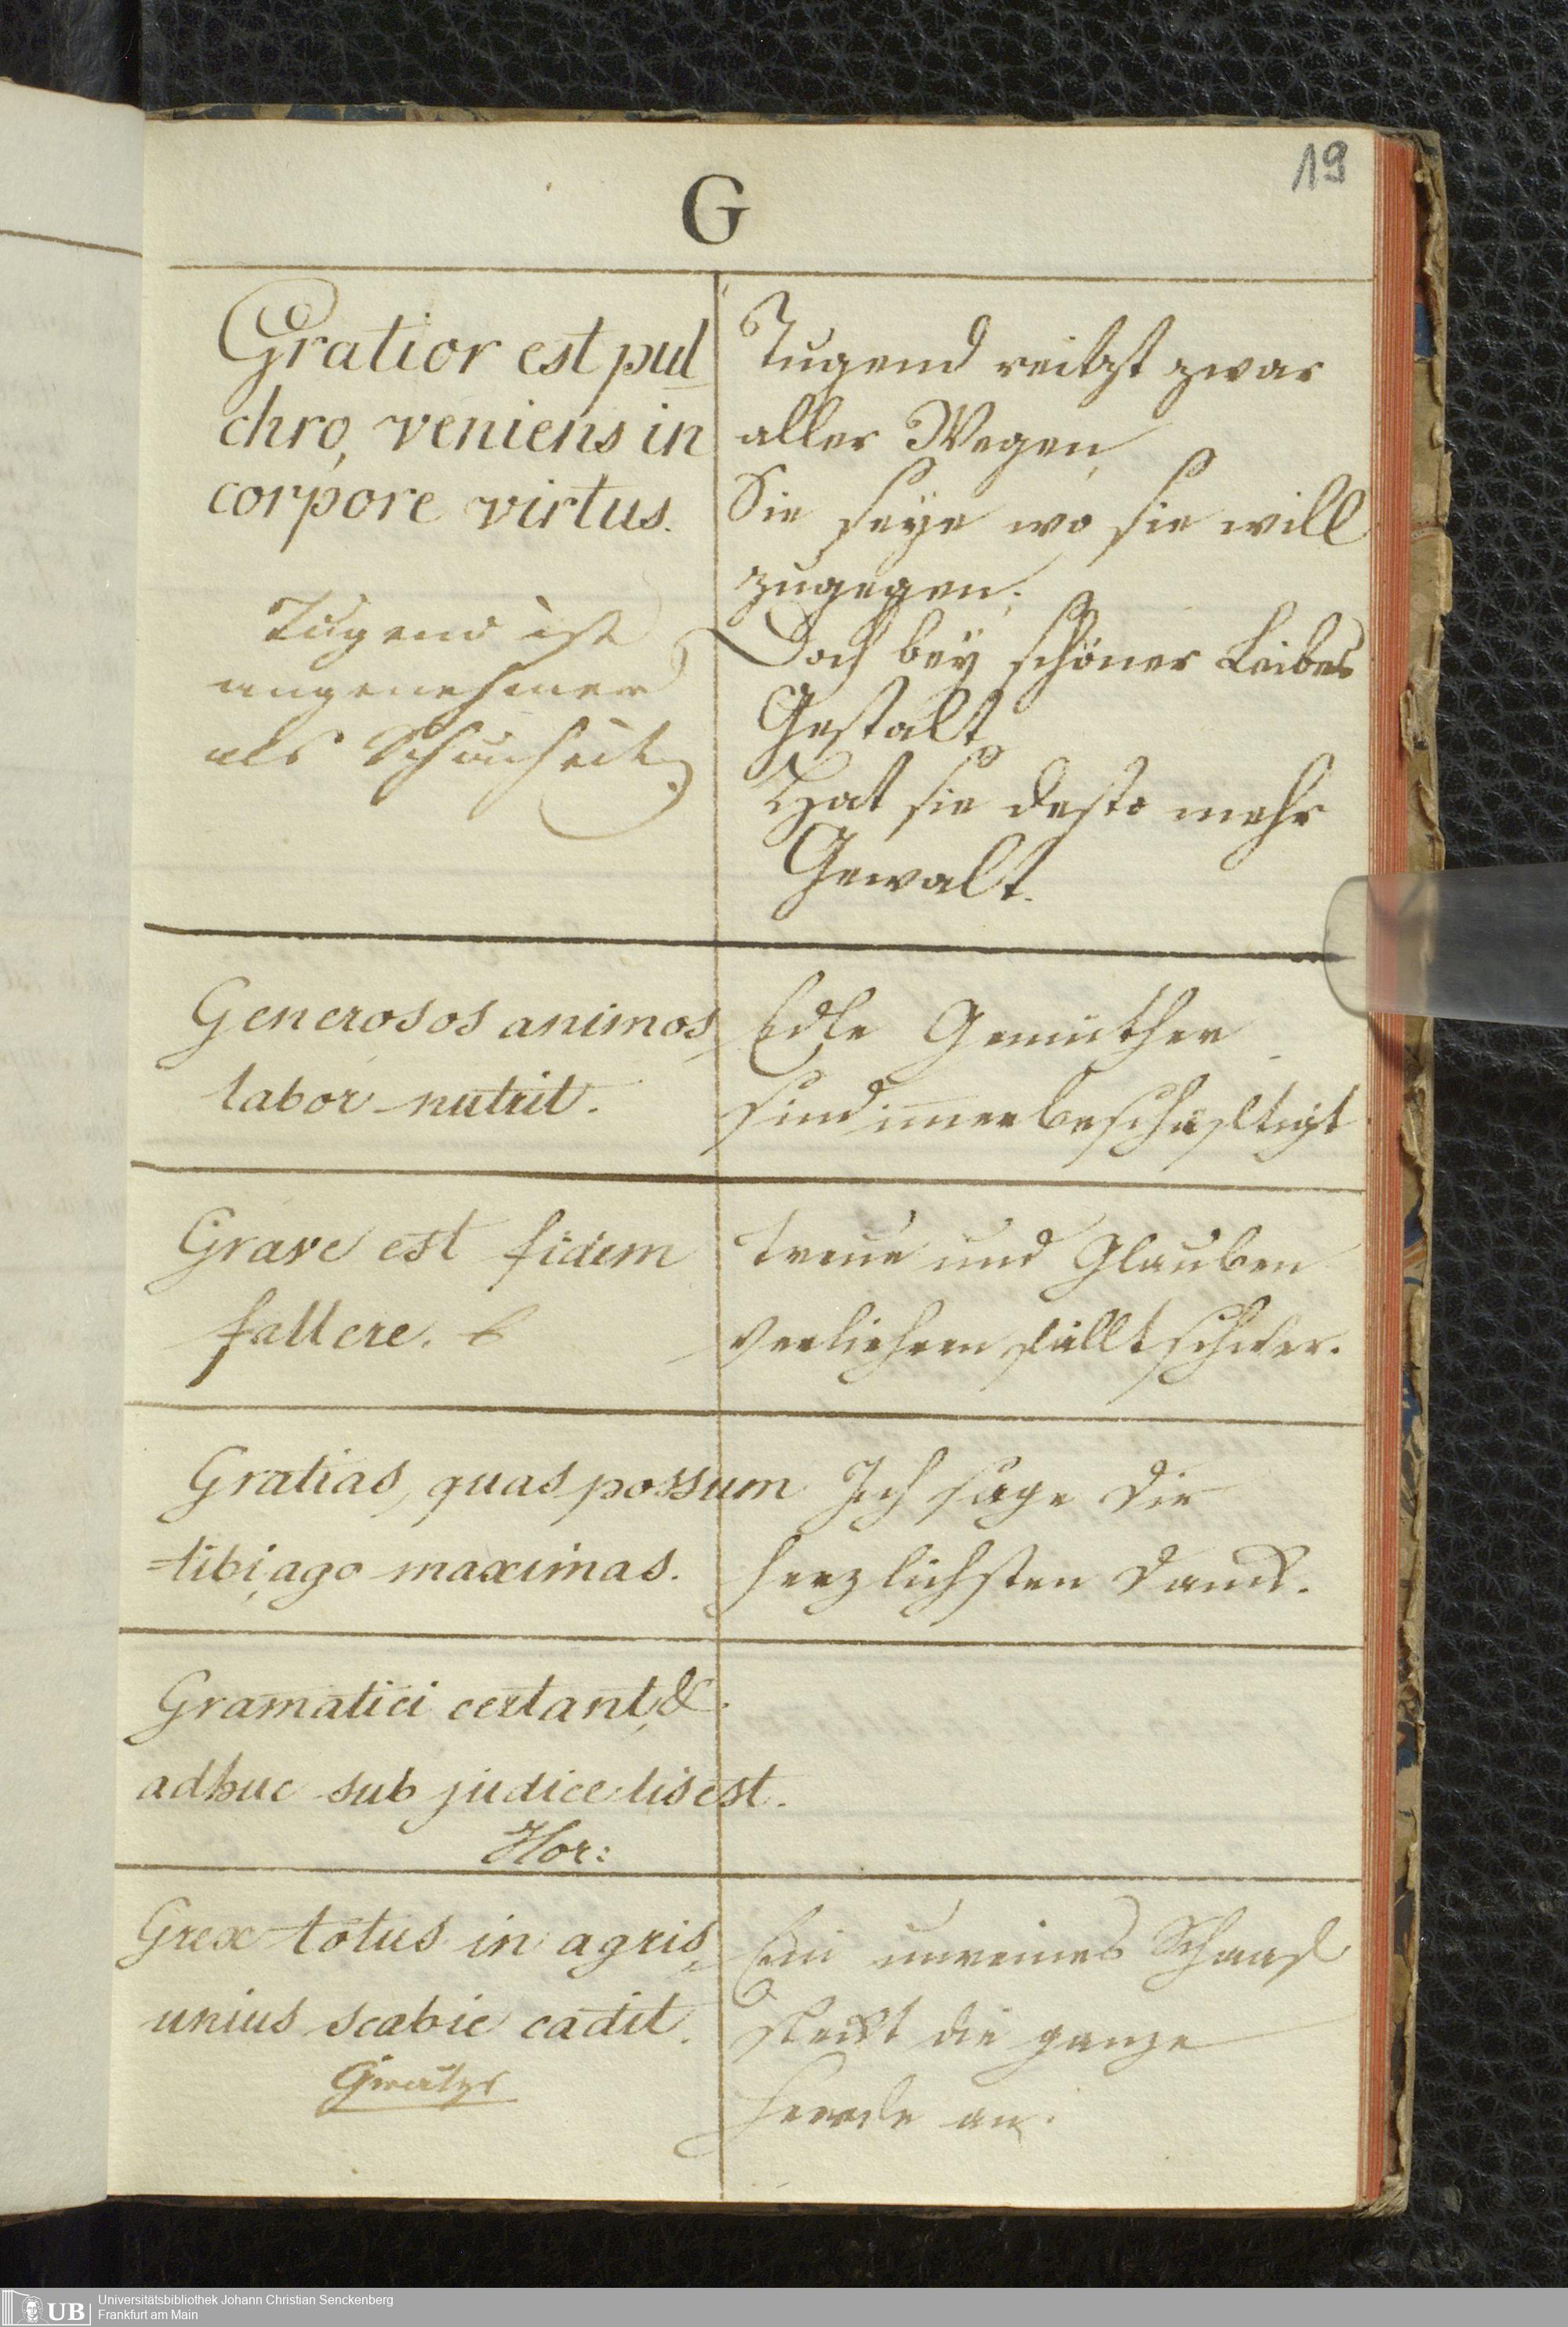 19
G
Gratior est pul
chro, veniens in
corpore virtus.
Tugend ist
angenehmer
als Schönheit.
Tugend reitzt zwar
aller Wegen,
Sie seÿe wo sie will
zugegen;
Doch beÿ schöner Leibes
Gestalt,
Hat sie desto mehr
Gewalt.
Generosos animos,
labor nutrit.
Edle Gemüther
sind im̅er beschäftigt
Grave est fidem
fallere.
Treue und Glauben
verliehren fällt schwer.
Gratias, quas possum
tibi, ago maximas.
Ich sage dir
herzlichsten Danck.
Gram̅atici certant, &
adhuc sub judice lis est.
Hor:
Grex totus in agris,
unius scabie cadit.
Ein unreines Schaaf
steckt die ganze
Heerde an.
Universitätsbibliothek Johann Christian Senckenberg
Frankfurt am Main
UB